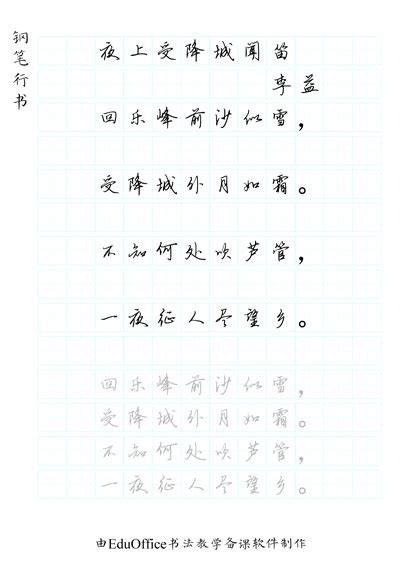 钢笔行书
夜上受降城闻笛
李益
回乐峰前沙似雪，
受降城外月如霜。
不知何处吹芦管，
一夜征人尽望乡。
回乐峰前沙似雪，
受降城外月如霜。
不知何处吹芦管，
一夜征人尽望乡。
由EduOffice书法教学备课软件制作